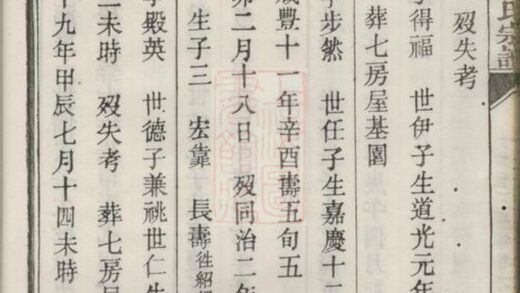 氏宗譜
歿失考
字得福　世伊子生道光元年
葬七房屋基園
字步然　世任子生嘉慶十二
咸豐十一年辛酉壽五旬五
二月十八日　歿同治二年
生子三　宏靠　長壽徃紹
字殿英　世德子兼祧世仁生
未時　歿失考　葬七房屋
十九年甲辰七月十四未時